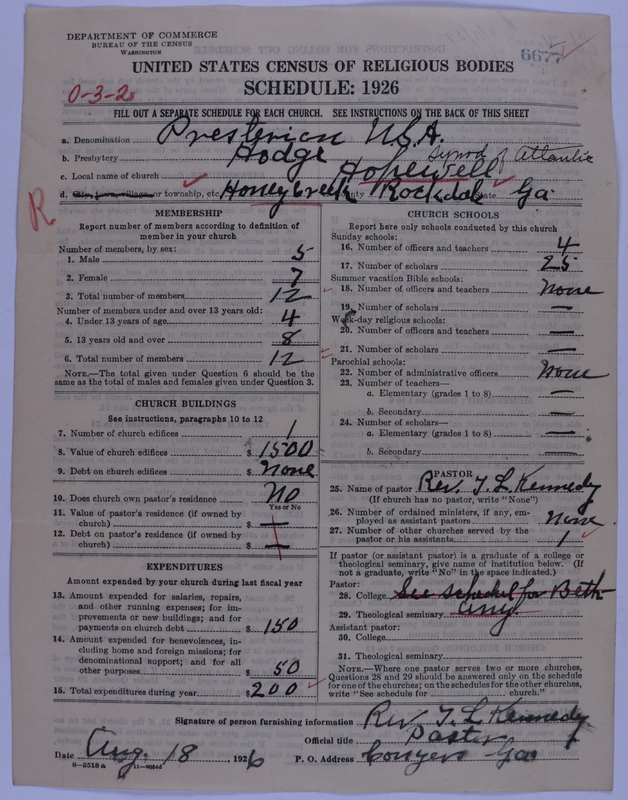 DEPARTMENT OF COMMERCE
BUREAU OF THE CENSUS
WASHINGTON
6677
UNITED STATES CENSUS OF RELIGIOUS BODIES
SCHEDULE: 1926
0-3-2
FILL OUT A SEPARATE SCHEDULE FOR EACH CHURCH. SEE INSTRUCTIONS ON THE BACK OF THIS SHEET
a. Denomination Presterian U.S.A.
b. Presbytery Hodge Synod of Atlantic
c. Local name of church Hopewell
d. City, town, village, or township, etc. Honeycreek County Rockdale State Ga
R
MEMBERSHIP
Report number of members according to definition of member in your church
Number of members, by sex:
1. Male 5
2. Female 7
3. Total number of members 12
Number of members under and over 13 years old:
4. Under 13 years of age 4
5. 13 years old and over 8
6. Total number of members 12
NOTE.—The total given under Question 6 should be the same as the total of males and females given under Question 3.
CHURCH BUILDINGS
See instructions, paragraphs 10 to 12
7. Number of church edifices 1
8. Value of church edifices $ 1500
9. Debt on church edifices $ None
10. Does church own pastor's residence No
Yes or No
11. Value of pastor's residence (if owned by church) $ —
12. Debt on pastor's residence (if owned by church) $ —
EXPENDITURES
Amount expended by your church during last fiscal year
13. Amount expended for salaries, repairs, and other running expenses; for improvements or new buildings; and for payments on church debt $ 150
14. Amount expended for benevolences, including home and foreign missions; for denominational support; and for all other purposes $ 50
15. Total expenditures during year $ 200
CHURCH SCHOOLS
Report here only schools conducted by this church
Sunday schools:
16. Number of officers and teachers 4
17. Number of scholars 25
Summer vacation Bible schools:
18. Number of officers and teachers None
19. Number of scholars —
Week-day religious schools:
20. Number of officers and teachers —
21. Number of scholars —
Parochial schools:
22. Number of administrative officers None
23. Number of teachers—
a. Elementary (grades 1 to 8) —
b. Secondary —
24. Number of scholars—
a. Elementary (grades 1 to 8) —
b. Secondary —
PASTOR
25. Name of pastor Rev. T. L. Kennedy
(If church has no pastor, write "None")
26. Number of ordained ministers, if any, employed as assistant pastors None
27. Number of other churches served by the pastor or his assistants 1
If pastor (or assistant pastor) is a graduate of a college or theological seminary, give name of institution below. (If not a graduate, write "No" in the space indicated.)
Pastor:
28. College See schedul for Beth
29. Theological seminary any
Assistant pastor:
30. College
31. Theological seminary
NOTE.—Where one pastor serves two or more churches, Questions 28 and 29 should be answered only on the schedule for one of the churches; on the schedules for the other churches, write "See schedule for church."
Signature of person furnishing information Rev T. L Kennedy
Official title Pastor
Date Aug. 18, 1926 P. O. Address Conyers Ga
8—5518 a